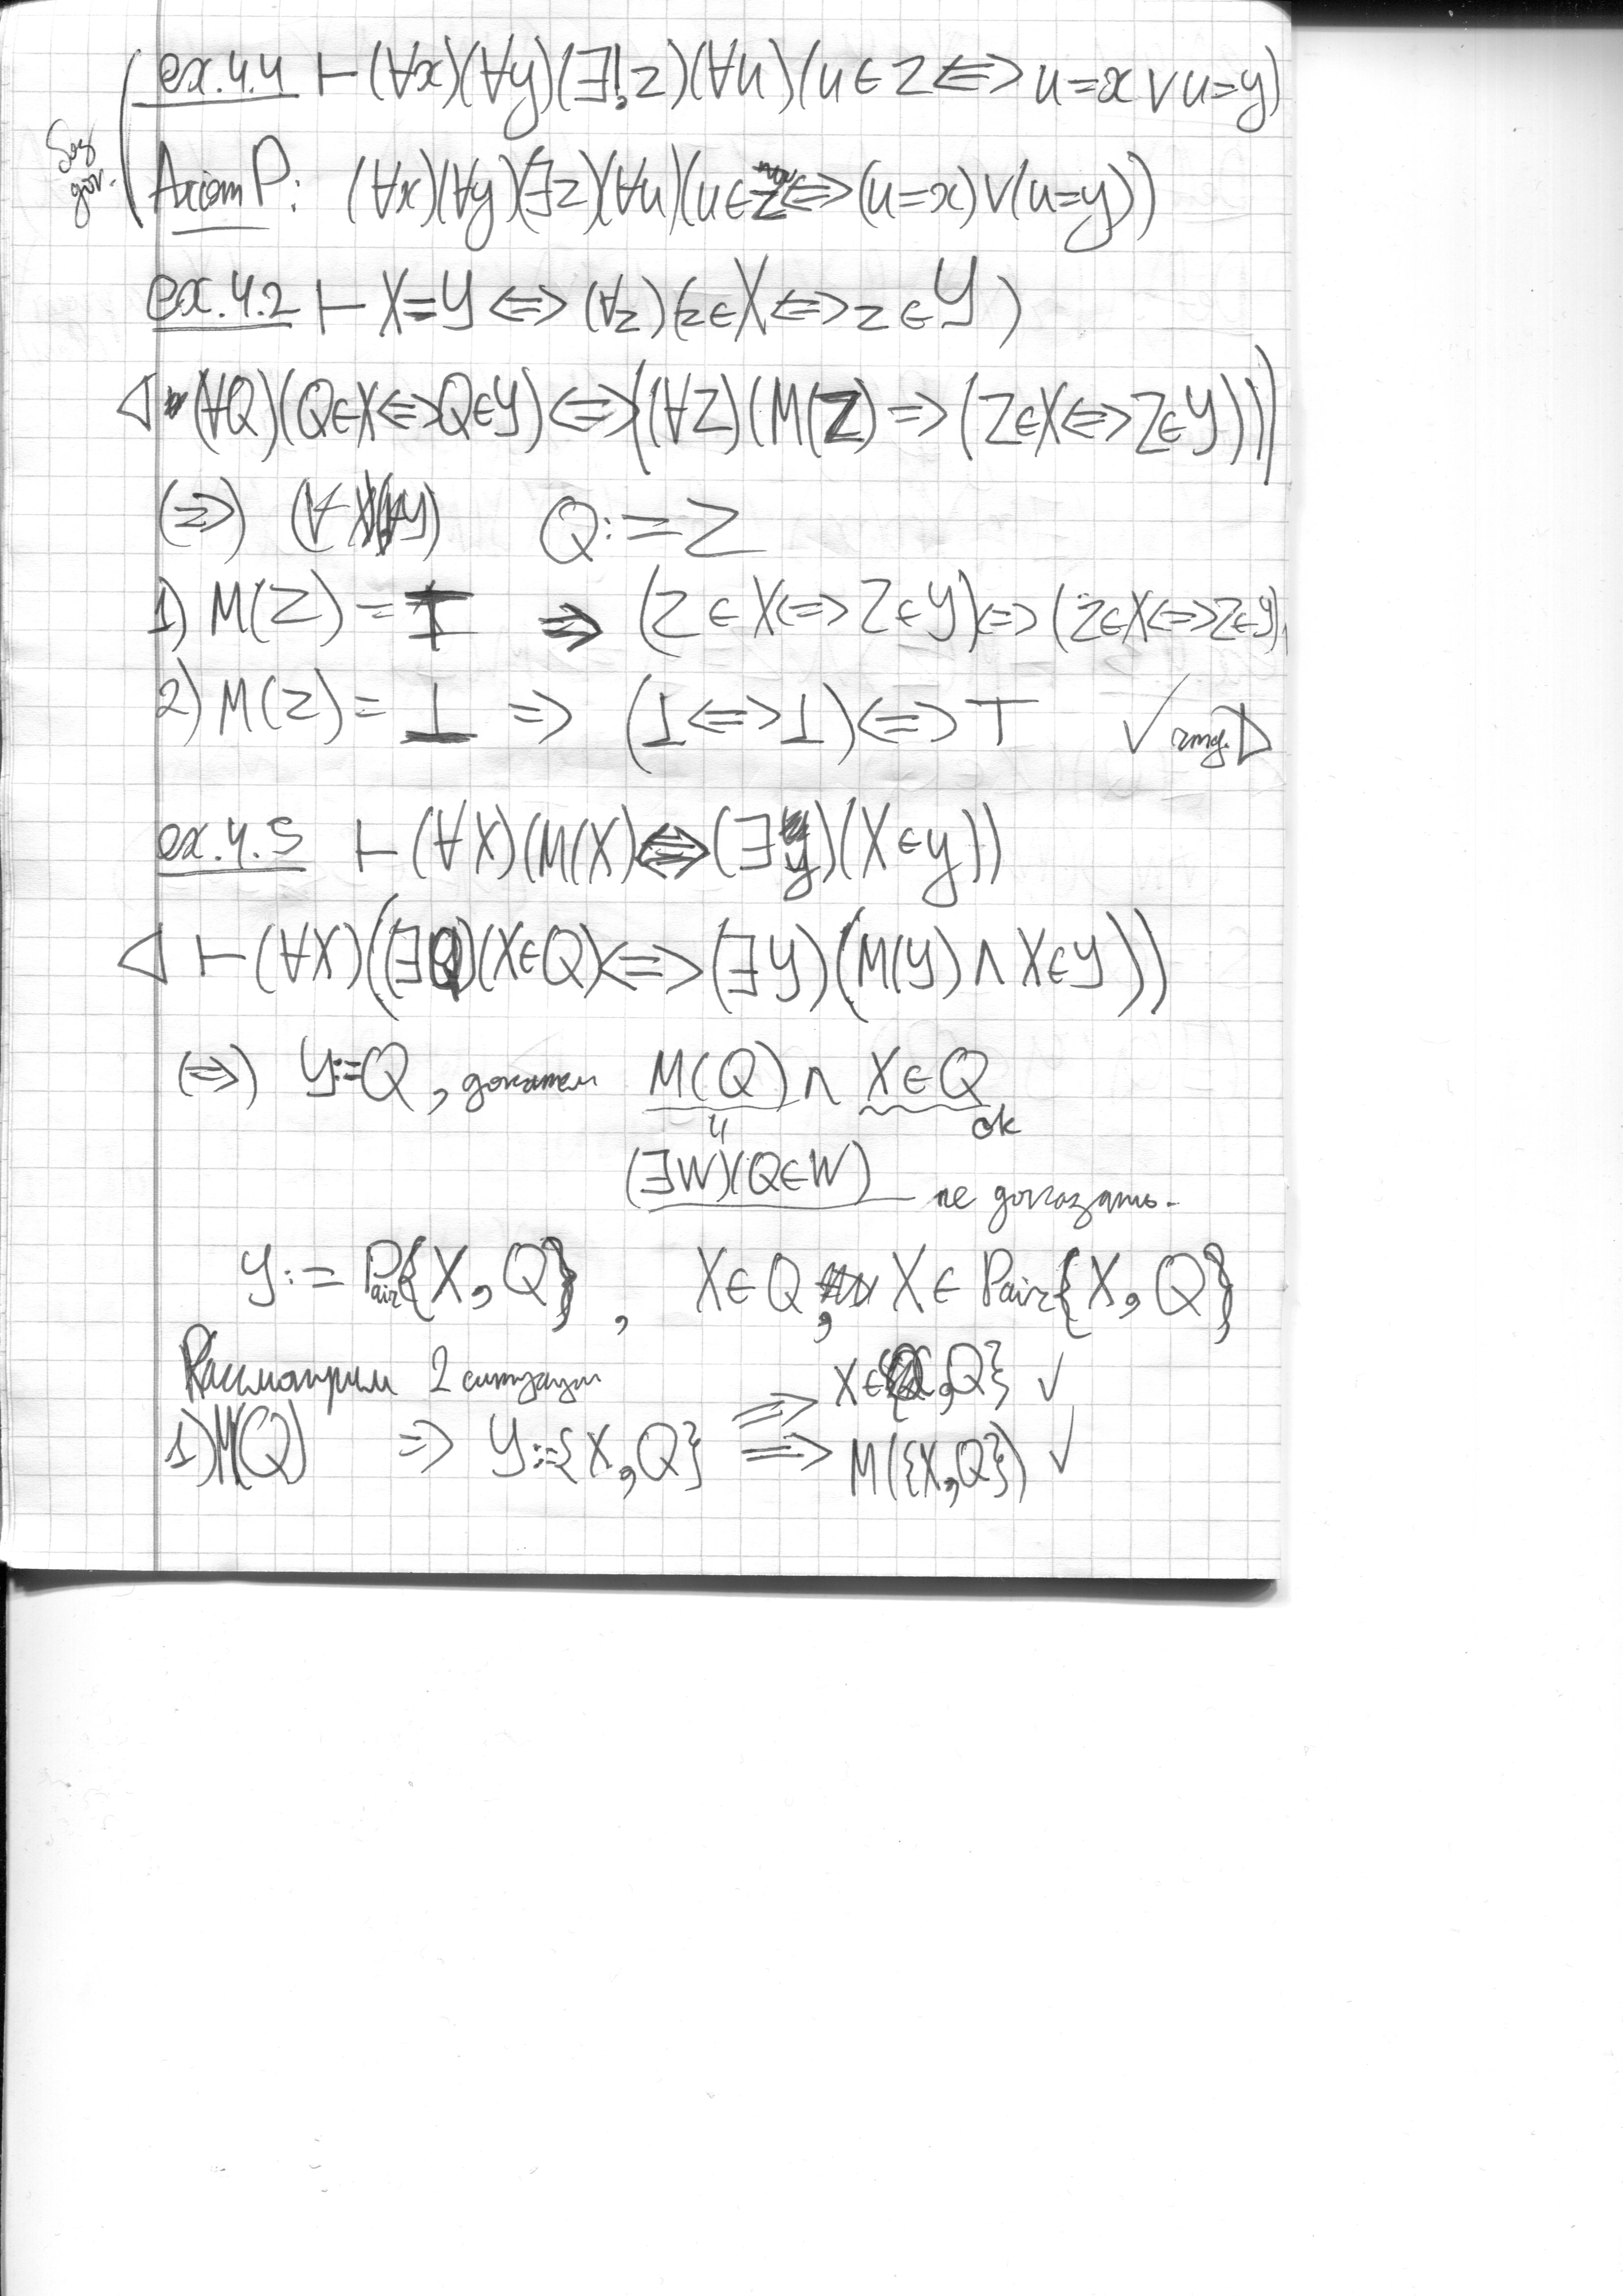 ex.4.4 ⊢ (∀x)(∀y)(∃!z)(∀u)(u∈z ⟺ u=x ∨ u=y)
без док.
Axiom P: (∀x)(∀y)(∃z)(∀u)(u∈z ⟺ (u=x)∨(u=y))
ex.4.2 ⊢ X=Y ⟺ (∀z)(z∈X ⟺ z∈Y)
◁ (∀Q)(Q∈X ⟺ Q∈Y) ⟺ ((∀Z)(M(Z) ⇒ (Z∈X ⟺ Z∈Y)))
(⇒) Q:=Z
1) M(Z) = T ⇒ (Z∈X ⟺ Z∈Y) ⟺ (Z∈X ⟺ Z∈Y)
2) M(Z) = ⊥ ⇒ (⊥ ⟺ ⊥) ⟺ T ✓ чтд. ▷
ex.4.5 ⊢ (∀X)(M(X) ⟺ (∃y)(X∈y))
◁ ⊢ (∀X)((∃Q)(X∈Q) ⟺ (∃Y)(M(Y) ∧ X∈Y))
(⇒) Y:=Q, докажем M(Q) ∧ X∈Q
ok
(∃W)(Q∈W) — не доказать.
Y:= Pair{X,Q}, X∈Q, X∈ Pair{X,Q}
Рассмотрим 2 ситуации
⇒ X∈{X,Q} ✓
1) M(Q) ⇒ Y:={X,Q} ⇒ M({X,Q}) ✓